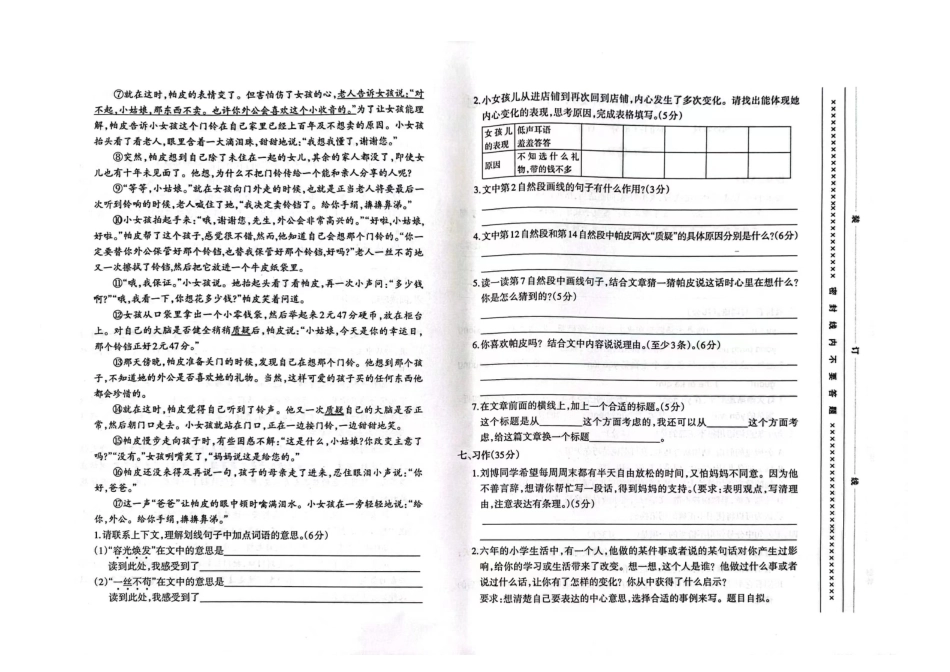 ⑦就在这时,帕皮的表情变了。但害怕伤了女孩的心,老人告诉女孩说:“对
不起,小姑娘,那东西不卖。也许你外公会喜欢这个小收音的。”为了让女孩能理
解,帕皮告诉小女孩这个门铃在自己家里已经上百年及不想卖的原因。小女孩
抬头看了看老人,眼里含着一大滴泪珠,甜甜地说:“我想我懂了,谢谢您。”
⑧突然,帕皮想到自己除了未住在一起的女儿,其余的家人都没了,即使女
儿也有十年未见面了。他想,为什么不把门铃传给一个能和亲人分享的人呢?
⑨“等等,小姑娘。”就在女孩向门外走的时候,也就是正当老人将要最后一
次听到铃响的时候,老人喊住了她,“我决定卖铃铛了。给你手绢,擤擤鼻涕。”
⑩小女孩拍起手来:“哦,谢谢您,先生,外公会非常高兴的。”“好啦,小姑娘,
好啦。”帕皮帮了这个孩子,感觉很不错,然而,他知道自己会想那个门铃的。“你一
定要替你外公保管好那个铃铛,也替我保管好那个铃铛,好吗?”老人一丝不苟地
又一次擦拭了铃铛,然后把它放进一个牛皮纸袋里。
⑪“哦,我保证。”小女孩说。她抬起头看了看帕皮,再一次小声问:“多少钱
啊?”“哦,我看一下,你想花多少钱?”帕皮笑着问道。
⑫女孩从口袋里拿出一个小零钱袋,然后举起来2元47分硬币,放在柜台
上。对自己的大脑是否健全稍稍质疑后,帕皮说:“小姑娘,今天是你的幸运日,
那个铃铛正好2元47分。”
⑬那天傍晚,帕皮准备关门的时候,发现自己在想那个门铃。他想到那个孩
子,不知道她的外公是否喜欢她的礼物。当然,这样可爱的孩子买的任何东西他
都会珍惜的。
⑭就在这时,帕皮觉得自己听到了铃声。他又一次质疑自己的大脑是否正
常,然后朝门口走去。小女孩就站在门口,正在一边按门铃,一边甜甜地笑。
⑮帕皮慢步走向孩子时,有些困惑不解:“这是什么,小姑娘?你改变主意了
吗?”“没有。”女孩咧嘴笑了,“妈妈说这是给您的。”
⑯帕皮还没来得及再说一句,孩子的母亲走了进来,忍住眼泪小声说:“你
好,爸爸。”
⑰这一声“爸爸”让帕皮的眼中顿时噙满泪水。小女孩在一旁轻轻地说:“给
你,外公。给你手绢,擤擤鼻涕。”
1.请联系上下文,理解划线句子中加点词语的意思。(6分)
(1)“容光焕发”在文中的意思是
读到此处,我感受到了
(2)“一丝不苟”在文中的意思是
读到此处,我感受到了
2.小女孩儿从进店铺到再次回到店铺,内心发生了多次变化。请找出能体现她
内心变化的表现,思考原因,完成表格填写。(5分)
女孩儿的表现 低声耳语 羞羞答答
原因 不知选什么礼物,带的钱不多
3.文中第2自然段画线的句子有什么作用?(3分)
4.文中第12自然段和第14自然段中帕皮两次“质疑”的具体原因分别是什么?(6分)
5.读一读第7自然段中画线句子,结合文章猜一猜帕皮说这话时心里在想什么?
你是怎么猜到的?(5分)
6.你喜欢帕皮吗? 结合文中内容说说理由。(至少3条)。(6分)
7.在文章前面的横线上,加上一个合适的标题。(5分)
这个标题是从 这个方面考虑的,我还可以从 这个方面考
虑,给这篇文章换一个标题 。
七、习作(35分)
1.刘博同学希望每周周末都有半天自由放松的时间,又怕妈妈不同意。因为他
不善言辞,想请你帮忙写一段话,得到妈妈的支持。(要求:表明观点,写清理
由,注意表达有条理。)(5分)
2.六年的小学生活中,有一个人,他做的某件事或者说的某句话对你产生过影
响,给你的学习或生活带来了改变。想一想,这个人是谁? 他做过什么事或者
说过什么话,让你有了怎样的变化? 你从中获得了什么启示?
要求:想清楚自己要表达的中心意思,选择合适的事例来写。题目自拟。
××××××××××××××××××密封线内不要答题××××××××××××××××××
装 订 线